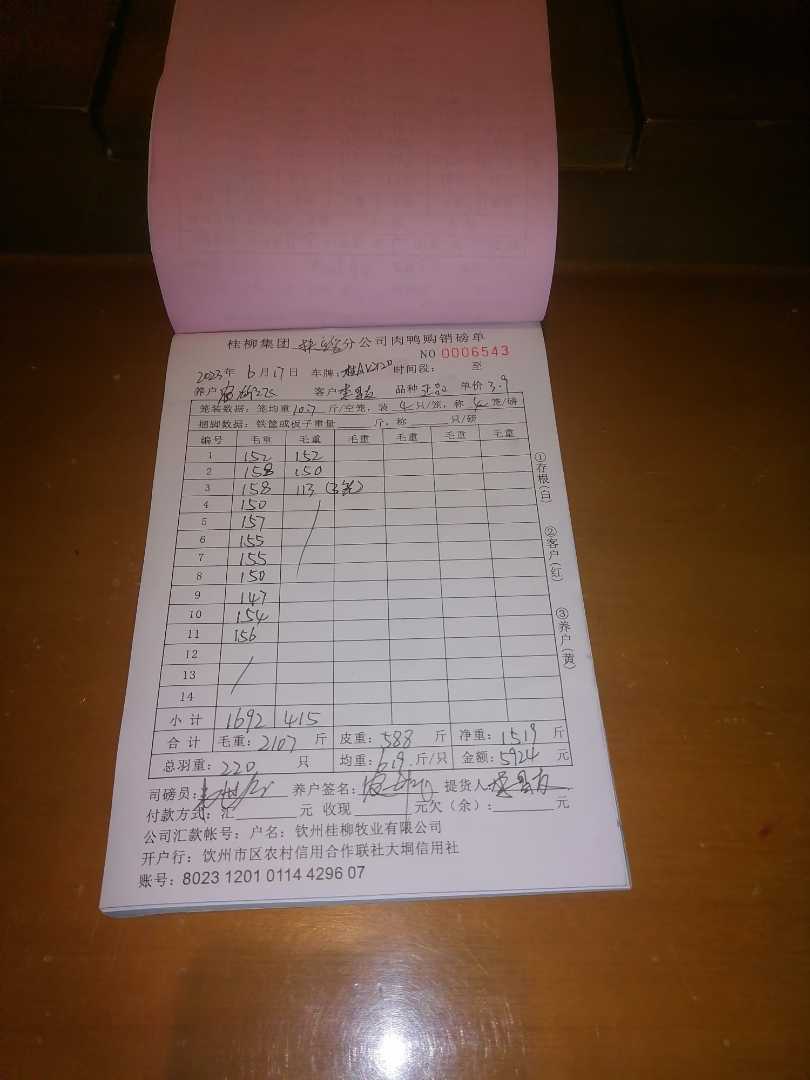 桂柳集团 分公司肉鸭购销磅单
NO 0006543
2023年 6月17日 车牌: 时间段: 至
养户 客户 品种 正品 单价 3.9
笼装数据: 笼均重 10.7 斤/空笼, 装 4 只/笼, 称 笼/磅
捆脚数据: 铁筐或板子重量 斤, 称 只/磅
编号 毛重 毛重 毛重 毛重 毛重 毛重
1 152 152
2 158 150
3 158 113 (3笼)
4 150
5 157
6 155
7 155
8 150
9 147
10 154
11 156
12
13
14
小计 1692 415
合计 毛重: 2107 斤 皮重: 588 斤 净重: 1519 斤
总羽重: 220 只 均重: 6.9 斤/只 金额: 5924 元
司磅员: 养户签名: 提货人:
付款方式: 汇 元 收现 元欠(余): 元
公司汇款帐号: 户名: 钦州桂柳牧业有限公司
开户行: 钦州市区农村信用合作联社大垌信用社
账号: 8023 1201 0114 4296 07
①存根(白)
②客户(红)
③养户(黄)